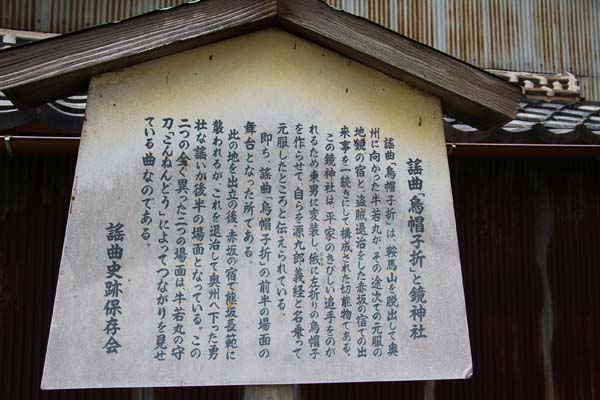 謡曲「烏帽子折」と鏡神社
謡曲「烏帽子折」は、鞍馬山を脱出して奥
州に向かった牛若丸が、その途次での元服の
地鏡の宿と、盗賊退治をした赤坂の宿での出
来事を一続きにして構成された切能物である。
この鏡神社は、平家のきびしい追手をのが
れるため東男に変装し、俄に左折りの烏帽子
を作らせて、自らを源九郎義経と名乗って
元服したところと伝えられている。
即ち、謡曲「烏帽子折」の前半の場面の
舞台となった所である。
此の地を出立の後、赤坂の宿で熊坂長範に
襲われるが、これを退治して奥州へ下った勇
壮な謡いが後半の場面となっている。この
二つの全く異った二つの場面は、牛若丸の守
刀「こんねんどう」によってつながりを見せ
ている曲なのである。
謡曲史跡保存会